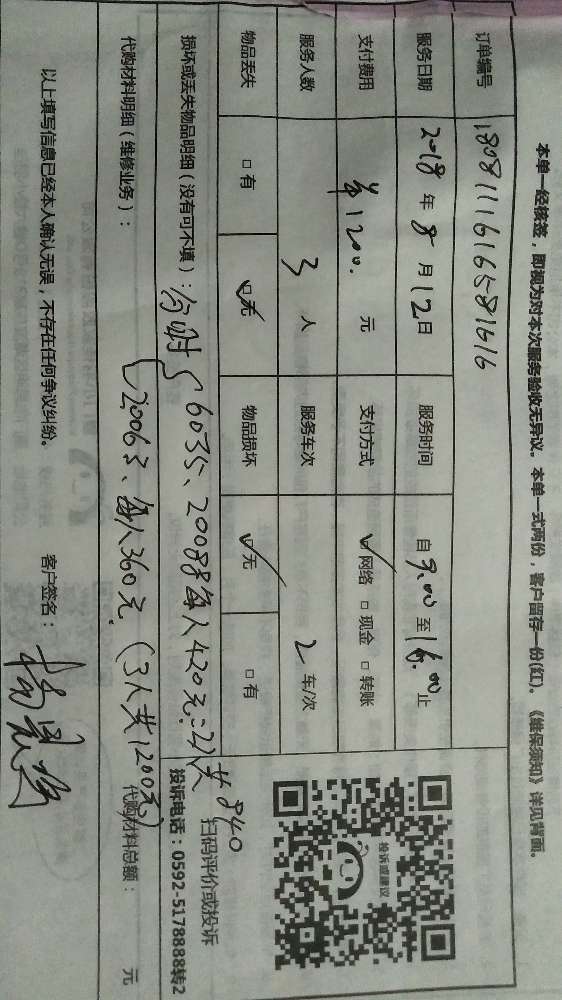 本单一经核签，即视为对本次服务验收无异议。本单一式两份，客户留存一份(红)。《维保须知》详见背面。
订单编号 1808111616581616
服务日期 2018 年 8 月 12 日 服务时间 自 9:00 至 16:00 止
支付费用 1200. 元 支付方式 ☑网络 □现金 □转账
服务人数 3 人 服务车次 2 车/次
物品丢失 □有 ☑无 物品损坏 ☑无 □有
投诉或建议
扫码评价或投诉
投诉电话：0592-5178888转2
损坏或丢失物品明细（没有可不填）：
6035、20088每人420元=2人共840
20063、每人360元（3人共1200元）
代购材料明细（维修业务）：
代购材料总额： 元
以上填写信息已经本人确认无误，不存在任何争议纠纷。 客户签名：